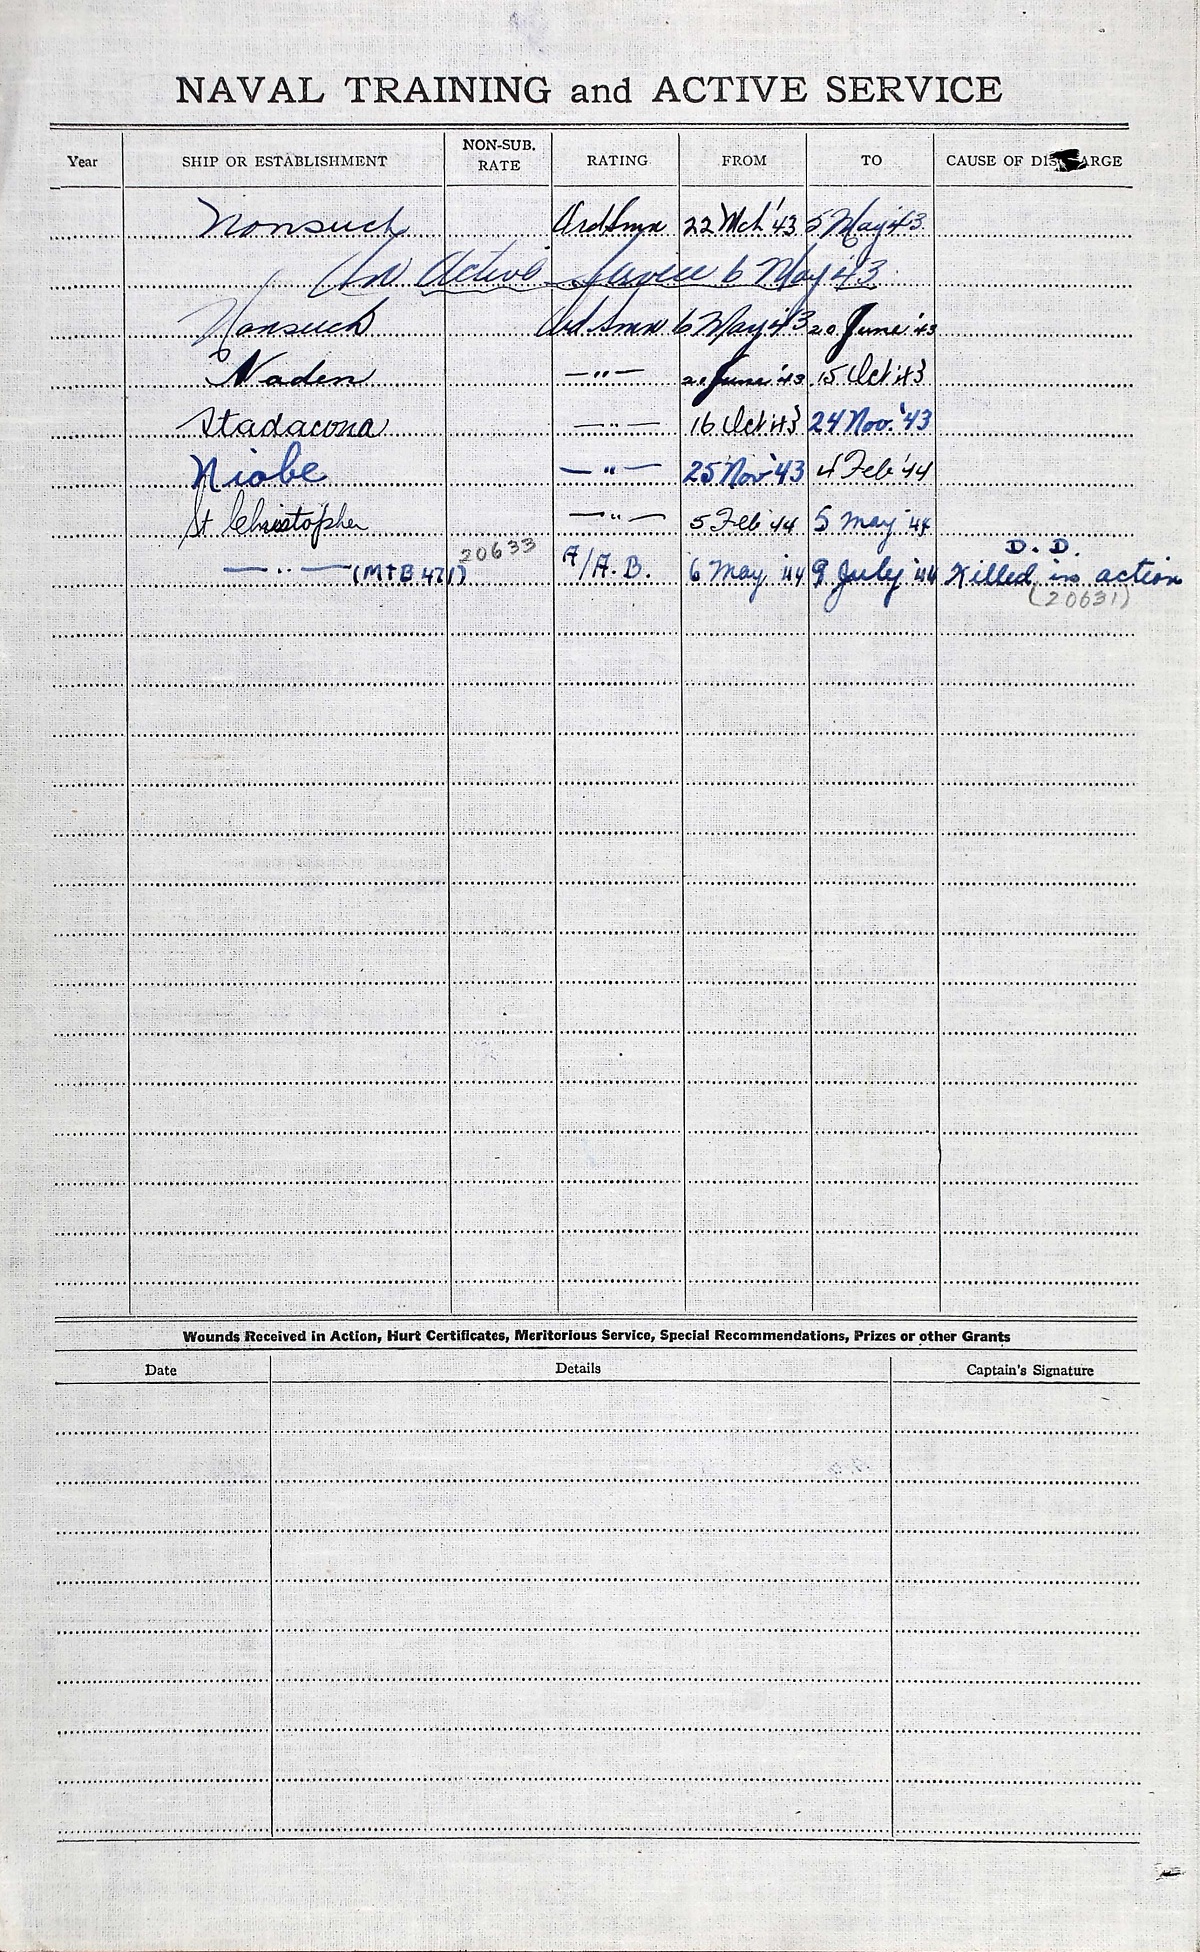 NAVAL TRAINING and ACTIVE SERVICE
Year SHIP OR ESTABLISHMENT NON-SUB. RATE RATING FROM TO CAUSE OF DISCHARGE
Nonsuch OrdSmn 22 Mch '43 5 May '43
On Active Service 6 May '43
Nonsuch Ord Smn 6 May '43 20 June '43
Naden —"— 21 June '43 15 Oct '43
Stadacona —"— 16 Oct '43 24 Nov. '43
Niobe —"— 25 Nov '43 4 Feb '44
St Christopher —"— 5 Feb '44 5 May '44
20633 D.D.
—"— (MTB 471) A/A.B. 6 May '44 9 July '44 Killed in action
(20631)
Wounds Received in Action, Hurt Certificates, Meritorious Service, Special Recommendations, Prizes or other Grants
Date Details Captain's Signature